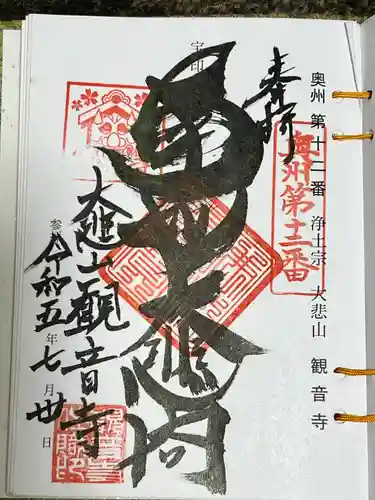 奥州 第十二番 浄土宗 大悲山 観音寺
奉拝
奥州第十二番
宝印
大悲閣
大悲山観音寺
参拝 令和五年七月廿日